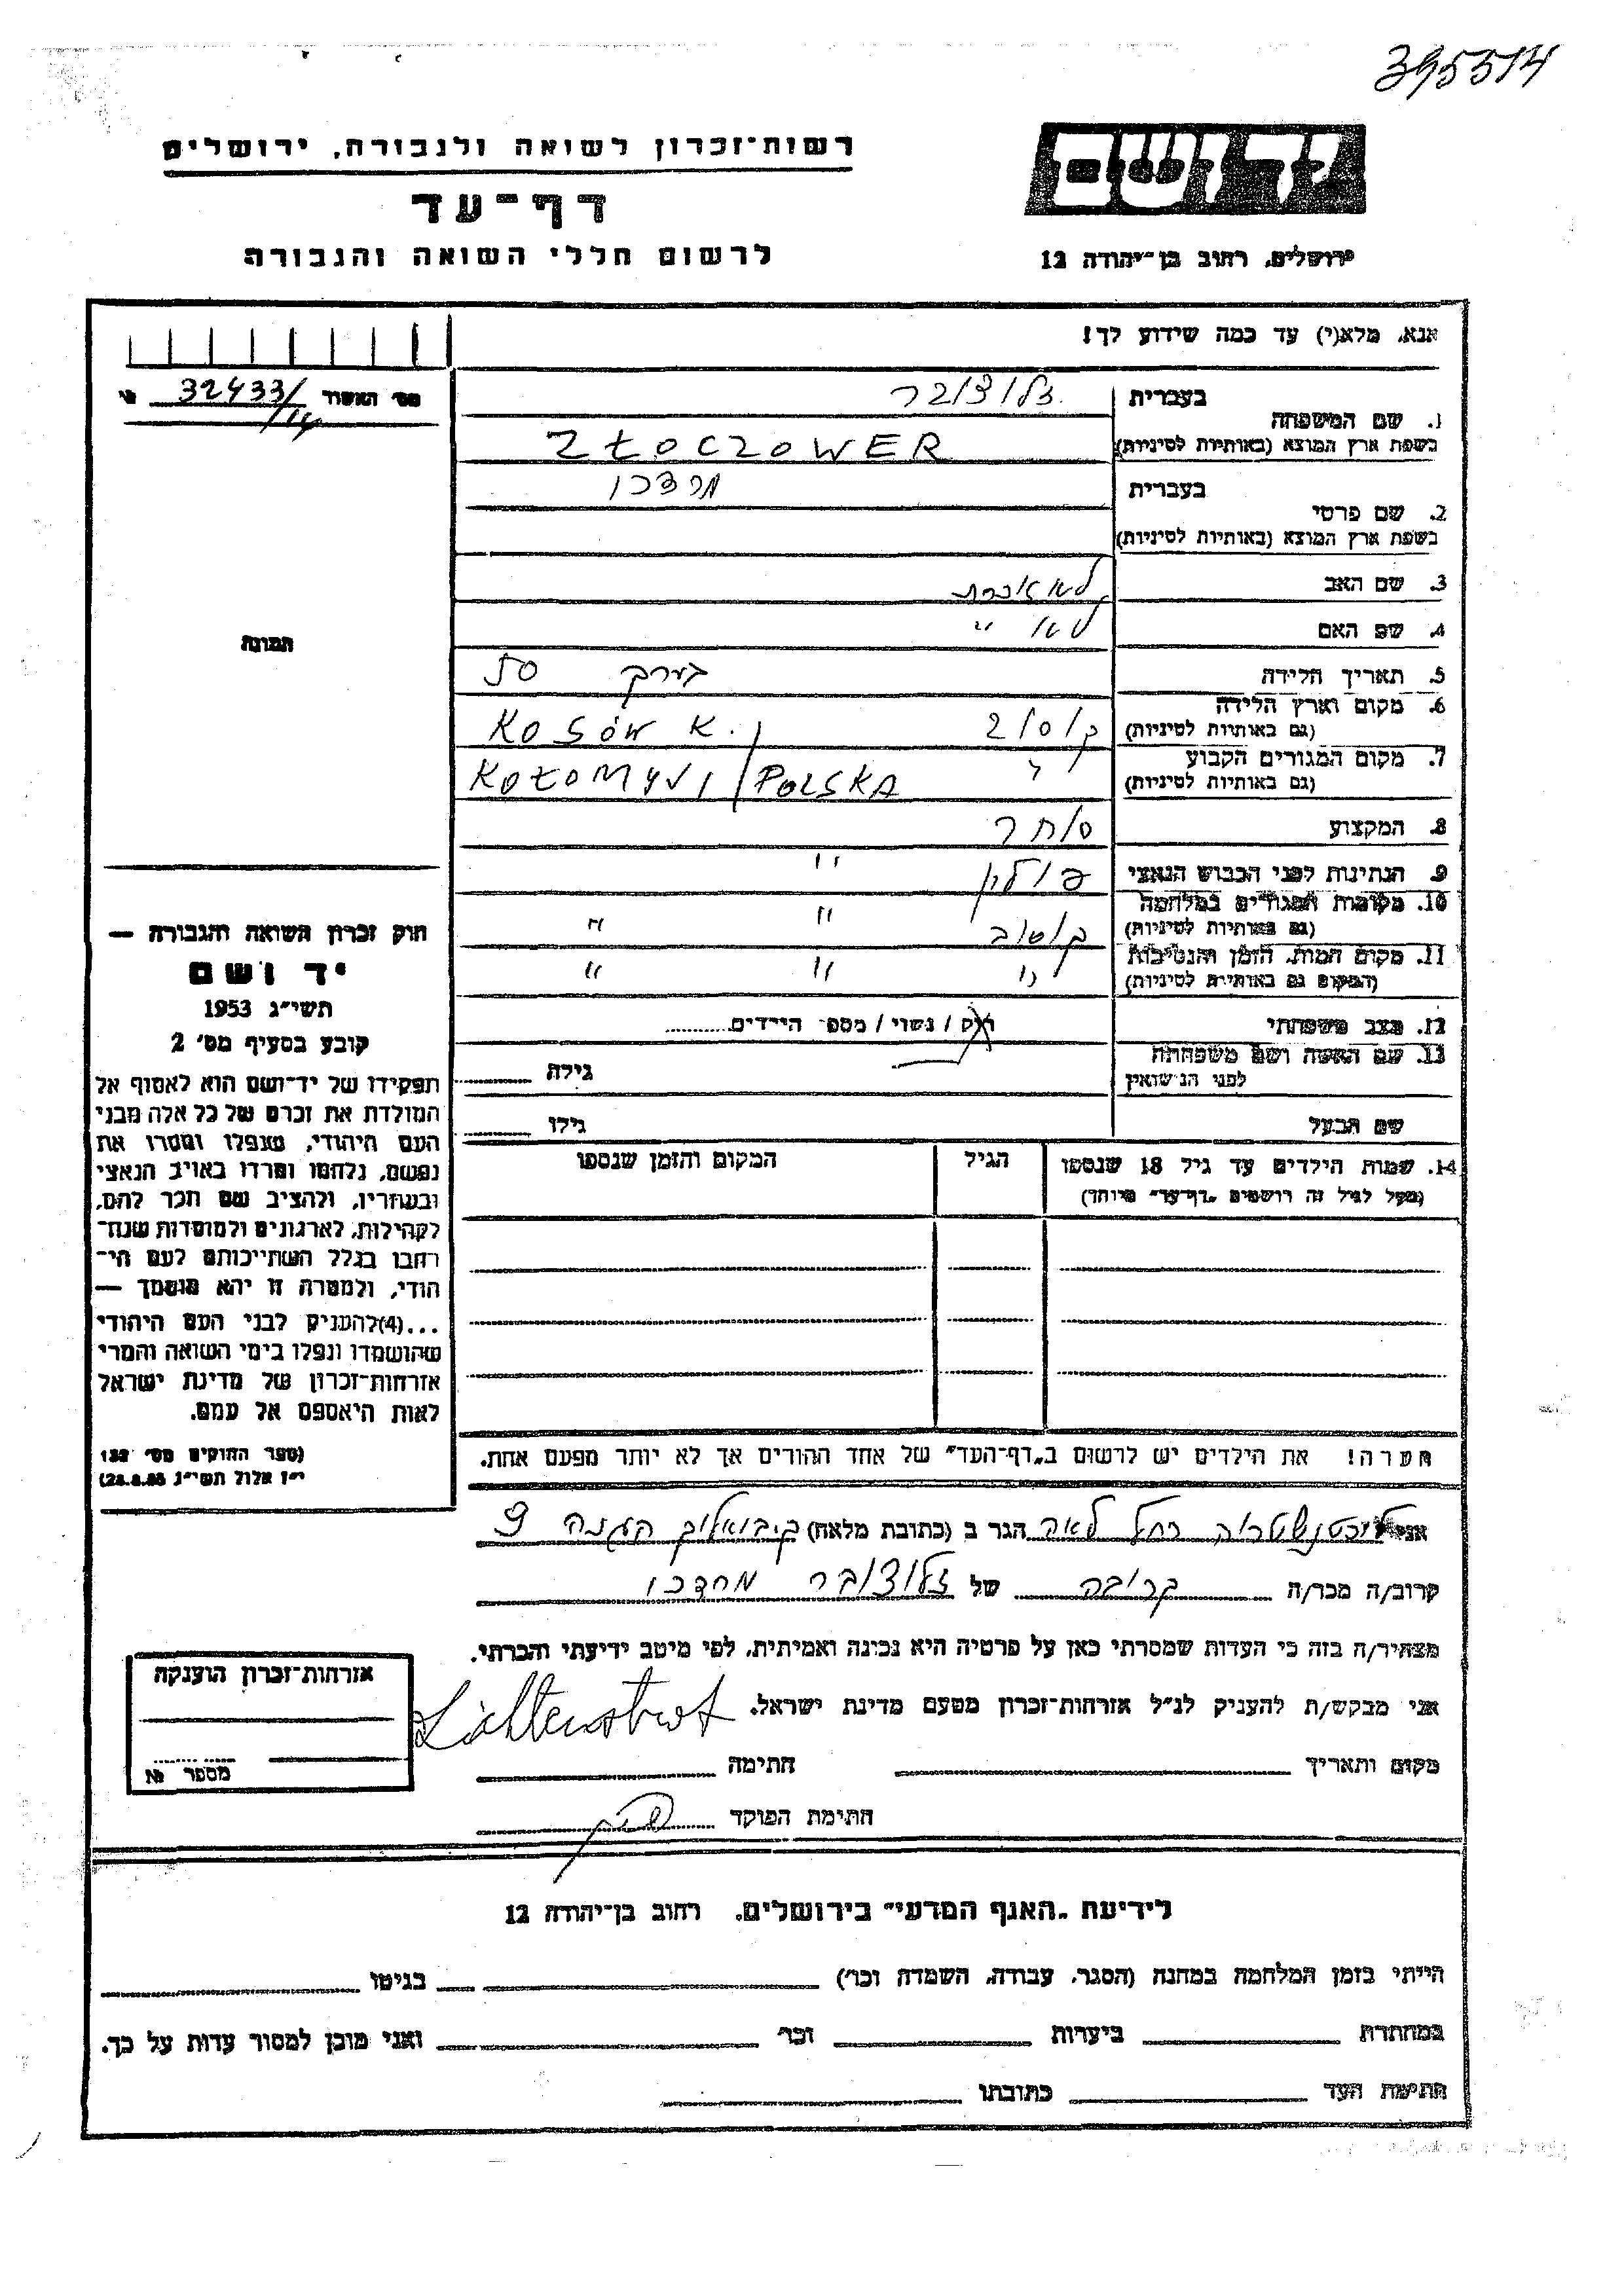 395514
יד ושם
ירושלים, רחוב בן־יהודה 12
רשות־זכרון לשואה ולגבורה, ירושלים
דף־עד
לרשום חללי השואה והגבורה
אנא, מלא(י) עד כמה שידוע לך!
מס׳ האשור 32433/14
1. שם המשפחה
בעברית זלוצ׳ובר
בשפת ארץ המוצא (באותיות לטיניות) ZŁOCZOWER
2. שם פרטי
בעברית מרדכי
בשפת ארץ המוצא (באותיות לטיניות)
3. שם האב לא זוכרת
4. שם האם לא "
5. תאריך הלידה בערך 50
6. מקום וארץ הלידה
(גם באותיות לטיניות) קוסוב KOSÓW K.
7. מקום המגורים הקבוע
(גם באותיות לטיניות) " KOŁOMYJI / POLSKA
8. המקצוע סוחר
9. הנתינות לפני הכבוש הנאצי פולין "
10. מקומות המגורים במלחמה
(גם באותיות לטיניות) קוסוב " "
11. מקום המות, הזמן והנסיבות
(המקום גם באותיות לטיניות) " " "
12. מצב משפחתי רוק / נשוי / מספר הילדים
13. שם האשה ושם משפחתה
לפני הנישואין גילה
שם הבעל גילו
14. שמות הילדים עד גיל 18 שנספו הגיל המקום והזמן שנספו
(מעל לגיל זה רושמים "דף־עד" מיוחד)
הערה! את הילדים יש לרשום ב"דף־העד" של אחד ההורים אך לא יותר מפעם אחת.
תמונה
חוק זכרון השואה והגבורה —
יד ושם
תשי״ג 1953
קובע בסעיף מס׳ 2
תפקידו של יד־ושם הוא לאסוף אל
המולדת את זכרם של כל אלה מבני
העם היהודי, שנפלו ומסרו את
נפשם, נלחמו ומרדו באויב הנאצי
ובעוזריו, ולהציב שם וזכר להם,
לקהילות, לארגונים ולמוסדות שנח־
רבו בגלל השתייכותם לעם הי־
הודי, ולמטרה זו יהא מוסמך —
...(4) להעניק לבני העם היהודי
שהושמדו ונפלו בימי השואה והמרי
אזרחות־זכרון של מדינת ישראל
לאות היאספם אל עמם.
(ספר החוקים מס׳ 132
י״ז אלול תשי״ג
אני ליכטנשטרוה רחל לאה הגר ב (כתובת מלאה) קיבואליק הגנה 9
קרוב/ה מכר/ה קרובה של זלוצ׳ובר מרדכי
מצהיר/ה בזה כי העדות שמסרתי כאן על פרטיה היא נכונה ואמיתית, לפי מיטב ידיעתי והכרתי.
אני מבקש/ת להעניק לנ״ל אזרחות־זכרון מטעם מדינת ישראל.
מקום ותאריך חתימה
חתימת הפוקד
אזרחות־זכרון הוענקה
מספר №
לידיעת "האגף המדעי" בירושלים, רחוב בן־יהודה 12
הייתי בזמן המלחמה במחנה (הסגר, עבודה, השמדה וכו׳) בגיטו
במחתרת ביערות וכו׳ ואני מוכן למסור עדות על כך.
חתימת העד כתובתו